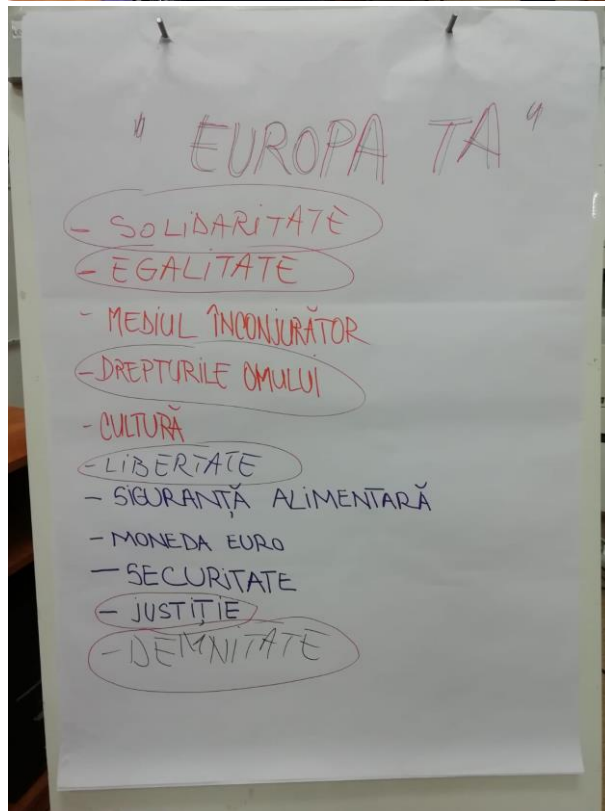 "EUROPA TA"
- SOLIDARITATE
- EGALITATE
- MEDIUL ÎNCONJURĂTOR
- DREPTURILE OMULUI
- CULTURĂ
- LIBERTATE
- SIGURANȚĂ ALIMENTARĂ
- MONEDA EURO
- SECURITATE
- JUSTIȚIE
- DEMNITATE